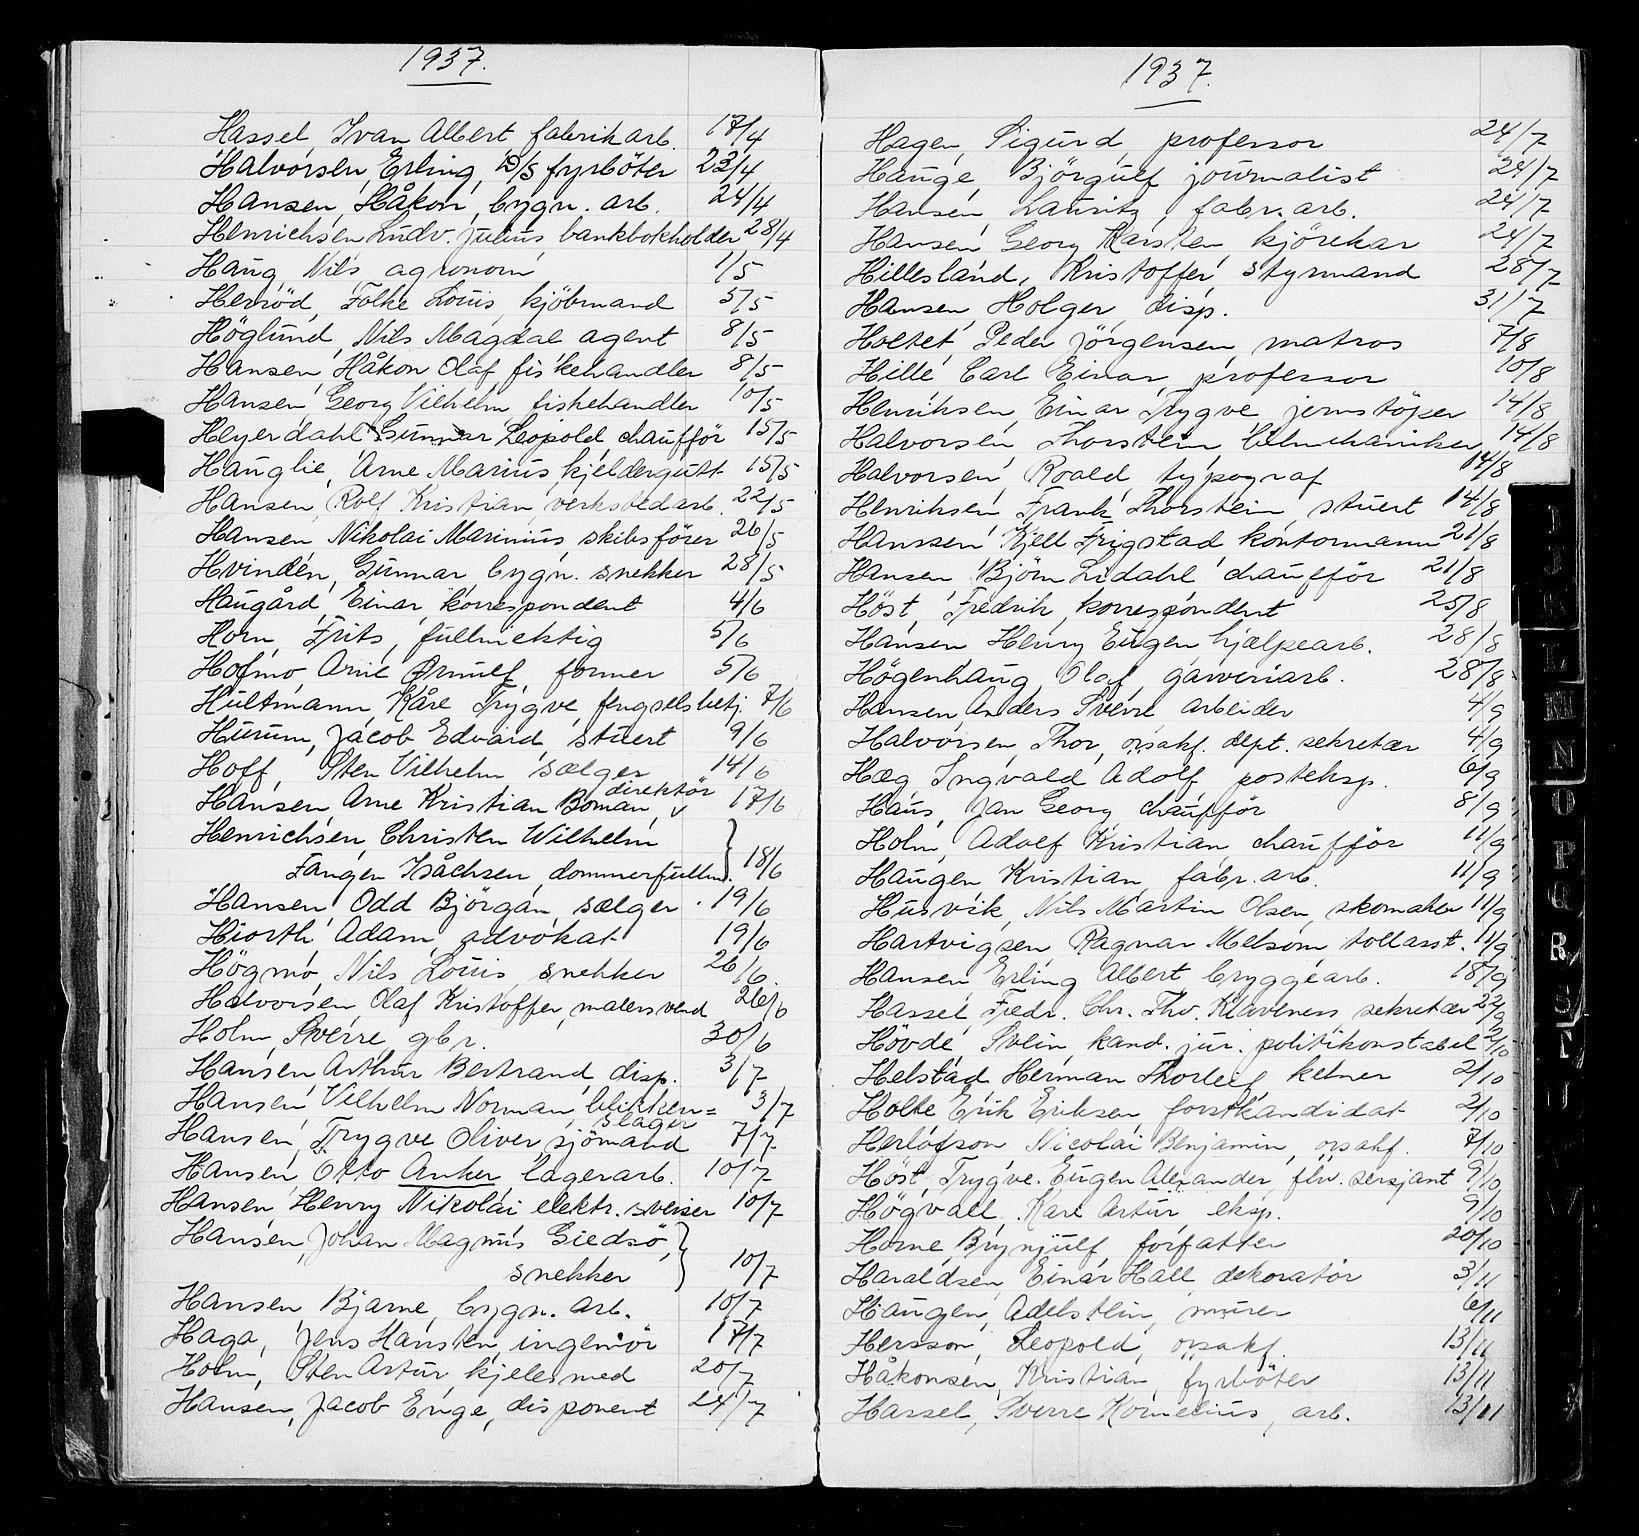 1937.
Hassel, Ivan Albert fabrikarb. 17/4
Halvorsen, Erling, D/S fyrböter 23/4
Hansen, Håkon, bygn. arb. 24/4
Henrichsen Ludv. Julius bankbokholder 28/4
Haug, Nils agronom 1/5
Hersöd, Folke Louis kjöbmand 5/5
Höglund, Nils Magdal agent 8/5
Hansen, Håkon Olaf fiskehandler 8/5
Hansen, Georg Vilhelm fiskehandler 10/5
Heyerdahl Gunnar Leopold, chaufför 15/5
Hauglie, Arne Marius kjeldergutt 15/5
Hansen, Rolf Kristian, verkstedarb. 22/5
Hansen Nikolai Marinius skibsförer 26/5
Hvinden, Gunnar, bygn. snekker 28/5
Haugård, Einar korrespondent 4/6
Horn, Frits, fullmektig 5/6
Hofmo, Arne Arnulf, former 5/6
Hultmann Kåre Trygve fengselsbetj. 7/6
Hurum, Jacob Edvard stuert 9/6
Hoff, Sten Vilhelm sælger 14/6
direktör
Hansen Arne Kristian Boman, v 17/6
Henrichsen, Christen Wilhelm
Fangen Isåchsen dommerfullm. 18/6
Hansen, Odd Björgan, sælger. 19/6
Hiorth, Adam, advokat 19/6
Högmo, Nils Louis snekker 26/6
Halvorsen, Olaf Kristoffer, malersvend 26/6
Holm, Sverre gbr. 30/6
Hansen Arthur Bertrand disp. 3/7
Hansen, Vilhelm Norman, blikken= 3/7
slager
Hansen, Trygve Oliver sjömand 7/7
Hansen, Otto Anker lagerarb. 10/7
Hansen, Henry Nikolai elektr. sveiser 10/7
Hansen, Johan Magnus Giedsö,
snekker 10/7
Hansen, Bjarne, bygn. arb. 10/7
Haga, Jens Hansten, ingeniör 17/7
Holm, Sten Artur, kjelesmed 20/7
Hansen, Jacob Enge, disponent 24/7
1937.
Hagen, Sigurd, professor 24/7
Hauge, Björgulf journalist 24/7
Hansen, Lauritz, fabr. arb. 24/7
Hansen, Georg Karsten, kjörekar 24/7
Hillesland, Kristoffer, styrmand 28/7
Hansen, Holger, disp. 31/7
Holtet, Peder Jörgensen, matros 7/8
Hille, Carl Einar, professor 10/8
Henriksen, Einar Trygve jernstöper 14/8
Halvorsen, Thorstein, bilmekaniker 14/8
Halvorsen, Roald, typograf 14/8
Henriksen, Frank Thorstein, stuert 14/8
Hanssen, Kjell Frigstad kontormann 21/8
Hansen, Björn Lidahl chaufför 21/8
Höst, Fredrik, korrespondent 25/8
Hansen Henry Eugen hjælpearb. 28/8
Högenhaug, Olaf, garveriarb. 28/8
Hansen, Anders Sverre arbeider 4/9
Halvorsen, Thor, o.r.sakf. dept. sekretær 4/9
Hæg, Ingvald Adolf, posteksp. 6/9
Haus, Jan Georg chaufför 8/9
Holm, Adolf Kristian chaufför 11/9
Haugen, Kristian, fabr. arb. 11/9
Husvik, Nils Martin Olsen, skomaker 11/9
Hartvigsen, Ragnar Melsom tollasst. 11/9
Hansen Erling Albert bryggearb. 18/9
Hassel, Fredr. Chr. Thv. Klaveness sekretær 22/9
Hövde, Svein kand. jur. politikonstabel 2/10
Helstad, Herman Thorleif kelner 2/10
Holte, Erik Eriksen, forstkandidat 2/10
Herlofson, Nicolai Benjamin, o.r.sakf. 7/10
Höst, Trygve Eugen Alexander, flv. sersjant 9/10
Högvall, Karl Artur eksp. 9/10
Horne, Brynjulf, forfatter 20/10
Haraldsen, Einar Hall, dekoratör 3/11
Haugen, Adelstein, murer 6/11
Hersson, Leopold, o.r.sakf. 13/11
Håkonsen, Kristian, fyrböter 13/11
Hassel, Sverre Kornelius, arb. 13/11
I
J
K
L
M
N
O
P
Q
R
S
T
U
V